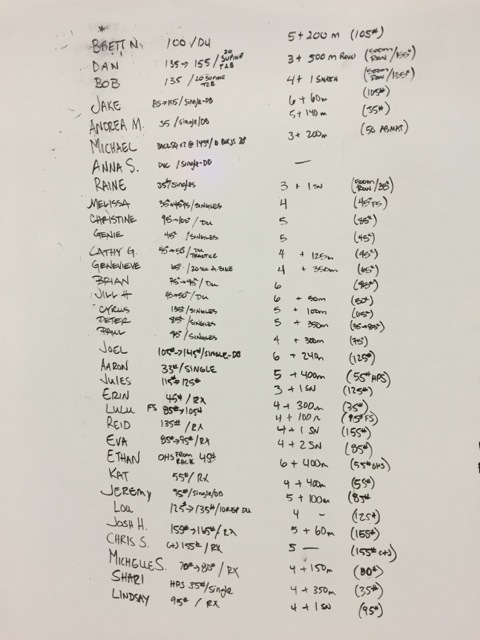 BRETT N. 100/DU 5+200m (105#)
DAN 135→155/20 SUPINE T2B 3+500m ROW (500m ROW/155#)
BOB 135/20 SUPINE T2B 4+1 SNATCH (500m ROW/135#)
JAKE 85→105/Single-DB 6+60m (105#)
ANDREA M. 35/Single/DB 5+140m (35#)
MICHAEL 3+200m (50 ABMAT)
ANNA S. /Single-DB —
RAINE 35#/Singles 3+1SN (500m ROW/35#)
MELISSA 35#→45#FS/SINGLES 4 (45#FS)
CHRISTINE 95→105#/DU 5 (85#)
GENIE 45#/SINGLES 5 (45#)
CATHY G. 45→50#/DU PRACTICE 4+125m (45#)
GENEVIEVE 65#/20 CAL A.BIKE 4+350m (65#)
BRIAN 75→95#/DU 6 (95#)
JILL H /DU 6+80m
CYRUS 135/SINGLES 5+100m (115#)
PETER 85#/SINGLES 5+350m (75→85#)
PAUL 95#/SINGLES 4+300m (75#)
JOEL 105#→145#/SINGLE-DB 6+240m (125#)
AARON 33#/SINGLE 5+400m (55# HPS)
JULES 115#→125# 3+1SN (125#)
ERIN 45#/RX 4+300m (35#)
LULU FS 85#→105# 4+100m (95#FS)
REID 135#/RX 4+1SN (155#)
EVA 85#→95#/RX 4+2SN (85#)
ETHAN OHS FROM RACK 45# 6+400m (55# OHS)
KAT 55#/RX 4+400m (55#)
JEREMY 95#/Single/DD 5+100m (85#)
LOU 125#→135#/10REP DU 4 - (125#)
JOSH H. 155#→165#/RX 5+60m (155#)
CHRIS S. (+) 155#/RX 5 — (155#(+))
MICHELLE S. 70#→80#/RX 4+150m (80#)
SHARI HPS 35#/Single 4+350m (35#)
LINDSAY 95#/RX 4+1SN (95#)